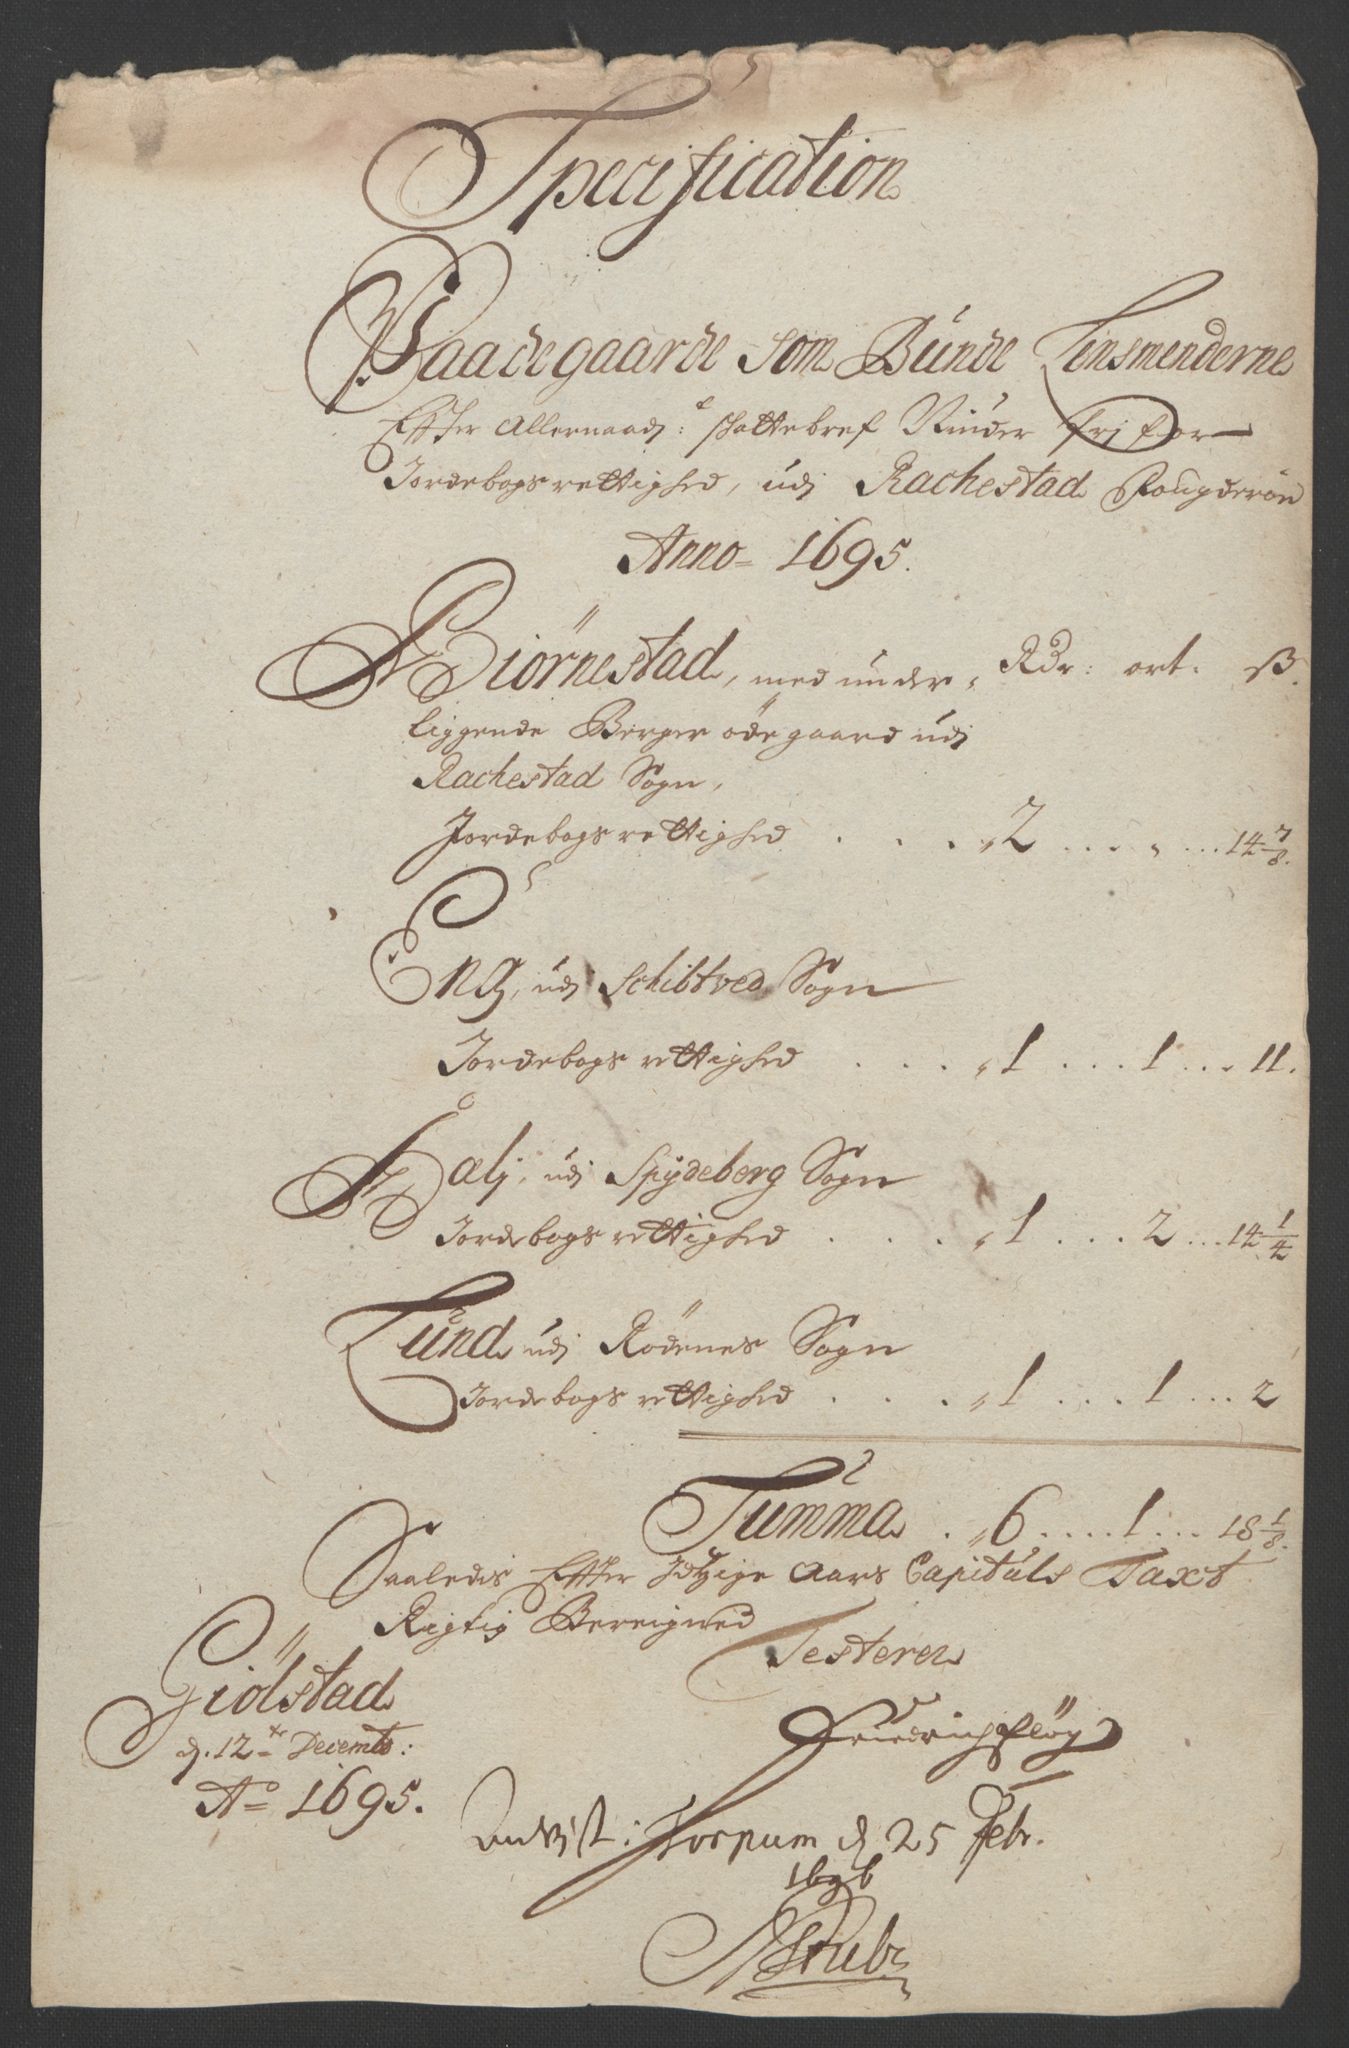 Specification
Paa de gaarde som Bunde Lensmenderne
Effter Allernaad: schattebref Niuder frj for
Jordebogs rettighed, udj Rachestad Fougderie
Anno 1695.
Biörnestad, med under, Rdr: ort. ß.
liggende Berger ödegaard udj
Rachestad Sogn,
Jordebogs rettighed . . . 2 . . . „ . . . 14 7/8.
Eng, udj Schibtved Sogn
Jordebogs rettighed . . . 1 . . . 1 . . . 11.
Halj, udj Spydeberg Sogn
Jordebogs rettighed . . . 1 . . . 2 . . . 14 1/4
Lund udj Rödenes Sogn
Jordebogs rettighed . . . 1 . . . 1 . . . 2
Summa . . 6 . . . . 1 . . . 18 1/8.
Saaledis Effter Itzige Aars Capituls Taxt
Rigtig Bereigned
Testerer
Giölstad
d. 12te Decembr:
Ao 1695.
Friedrich Pflög
Anvist i Thorpum d 25 Febr.
1696
NStub